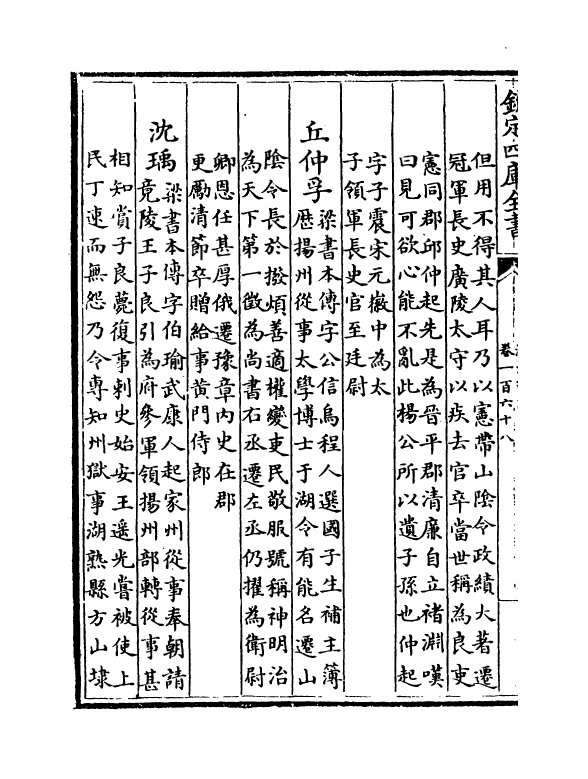 欽定四庫全書
卷一百六十八
但用不得其人耳乃以憲帶山陰令政績大著遷
冠軍長史廣陵太守以疾去官卒當世稱為良吏
憲同郡邱仲起先是為晉平郡清廉自立褚淵嘆
曰見可欲心能不亂此楊公所以遺子孫也仲起
字子震宋元徽中為太
子領軍長史官至廷尉
丘仲孚 梁書本傳字公信烏程人選國子生補主簿
歴揚州從事太學博士于湖令有能名遷山
陰令長於撥煩善適權變吏民敬服號稱神明治
為天下第一徴為尚書右丞遷左丞仍擢為衛尉
卿恩任甚厚俄遷豫章内史在郡
更勵清節卒贈給事黄門侍郎
沈瑀 梁書本傳字伯瑜武康人起家州從事奉朝請
竟陵王子良引為府參軍領揚州部轉從事甚
相知賞子良薨復事刺史始安王遥光嘗被使上
民丁速而無怨乃令專知州獄事湖熟縣方山埭